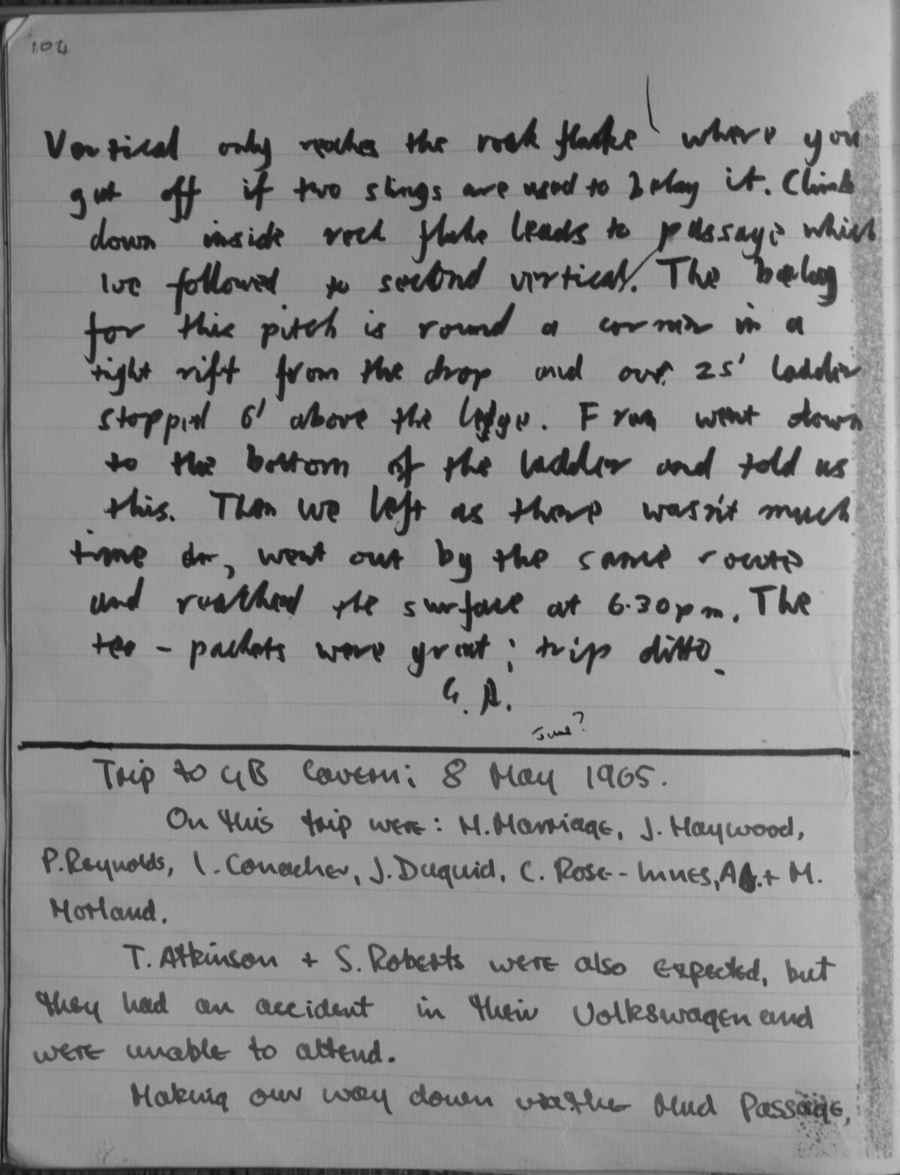 104
Vertical only reaches the rock flake where you
get off if two slings are used to belay it. Climb
down inside rock flake leads to passage which
we followed to second vertical. The belay
for this pitch is round a corner in a
tight rift from the drop and our 25' ladder
stopped 6' above the ledge. Fran went down
to the bottom of the ladder and told us
this. Then we left as there wasn't much
time etc, went out by the same route
and reached the surface at 6.30pm. The
tea-packets were great; trip ditto.
G. A.
June?
Trip to GB Cavern: 8 May 1965.
On this trip were: M. Marriage, J. Haywood,
P. Reynolds, I. Conacher, J. Duguid, C. Rose-Innes, A. + M.
Morland.
T. Atkinson + S. Roberts were also expected, but
they had an accident in their Volkswagen and
were unable to attend.
Making our way down via the Mud Passage,